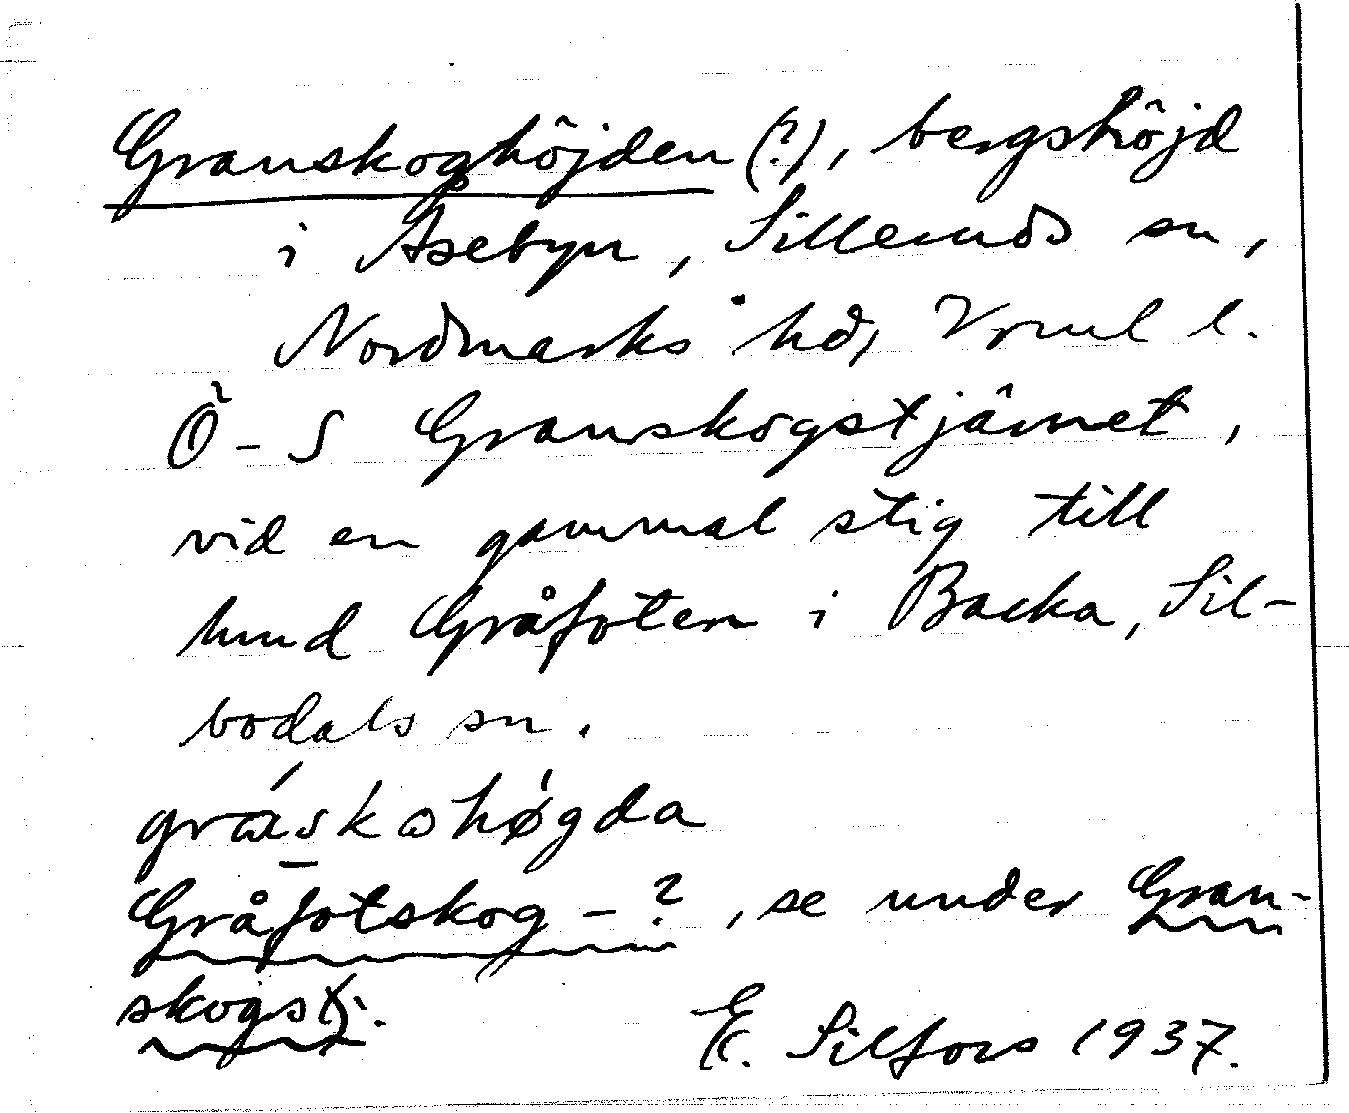 Granskoghöjden (?), bergshöjd
i Åsebyn, Silleruds sn,
Nordmarks hd, Vrml l.
Ö-S Granskogstjärnet,
vid en gammal stig till
hmd Gråfoten i Backa, Sil-
bodals sn.
gráskωhø̀gda
Gråfotskog-?, se under Gran-
skogstj.
E. Silfors 1937.